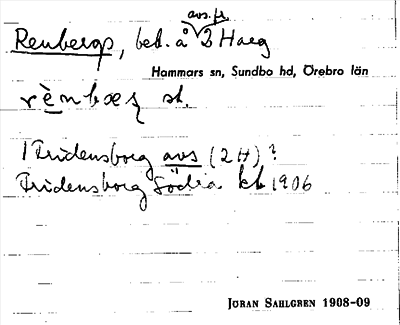 avs. fr.
Renbergs, bet. å 2 Haeg
Hammars sn, Sundbo hd, Örebro län
rènbæʒ st.
1 Fridensborg avs (2 H)?
Fridensborg Södra kb 1906
JÖRAN SAHLGREN 1908-09